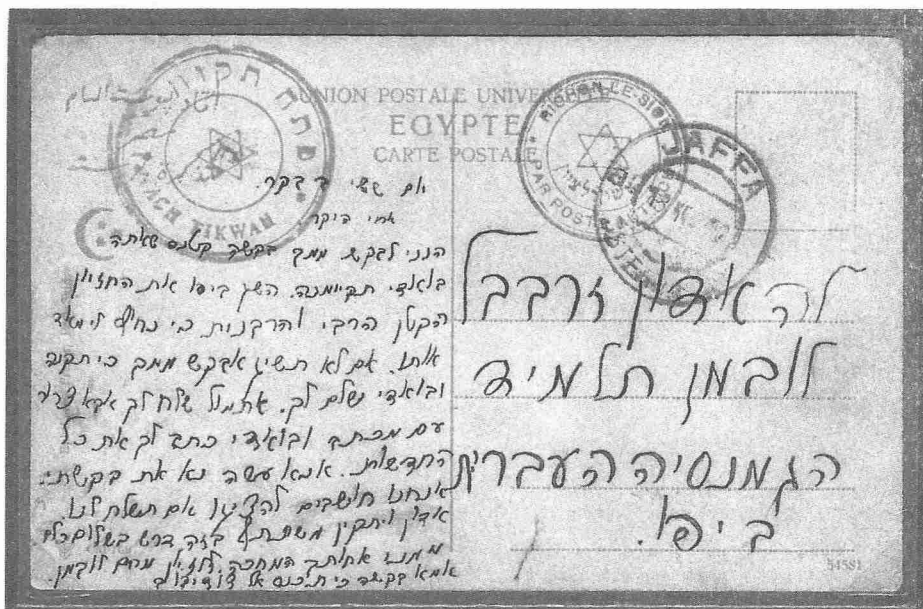 UNION POSTALE UNIVERSELLE
EGYPTE
CARTE POSTALE
פתח תקוה
PETACH TIKWAH
RISHON LE-SION
JAFFA
יום ששי בבקר.
אחי היקר
הנני לבקש ממך בקשה קטנה שאתה
בודאי תקיימנה. השג ביפו את החזיון
הקטן הרבי והרבנית כי נחוץ לימוד
אותו. אם לא תשיג אבקש ממך כי תקנה
ובודאי נשלם לך. אתמול שלח לך אבא
עם מכתב ובודאי כתב לך את כל
החדשות. אנא עשה נא את בקשתי.
אנחנו חושבים להציגו אם תשלח לנו.
אדון ויתקין משתתף בזה דרש בשלום כלם
ממני אחותך המחכה לחזיון מרים לובמן.
אמא בקשה כי תיכנס אל
לה אדון זרבבל
לובמן תלמיד
הגמנסיה העברית
ביפו.
54581